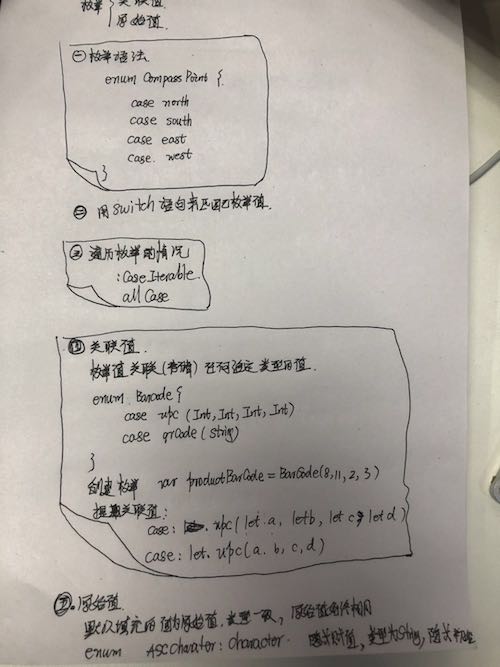 枚举 { 关联值
原始值
㊀ 枚举语法
enum CompassPoint {
case north
case south
case east
case west
}
㊁ 用switch语句来匹配枚举值.
㊂ 遍历枚举的情况
:CaseIterable.
allCase
㊃ 关联值.
枚举值关联(存储)任何给定类型的值.
enum Barcode {
case upc (Int, Int, Int, Int)
case qrCode (string)
}
创建枚举 var productBarCode = BarCode(8,11,2,3)
提取关联值:
case: .upc( let a, let b, let c, let d )
case: let .upc(a. b, c, d)
五. 原始值.
默认填充的值为原始值. 类型一致, 原始值始终相同
enum ASCcharater: Character. 隐式赋值, 类型为String, 隐式